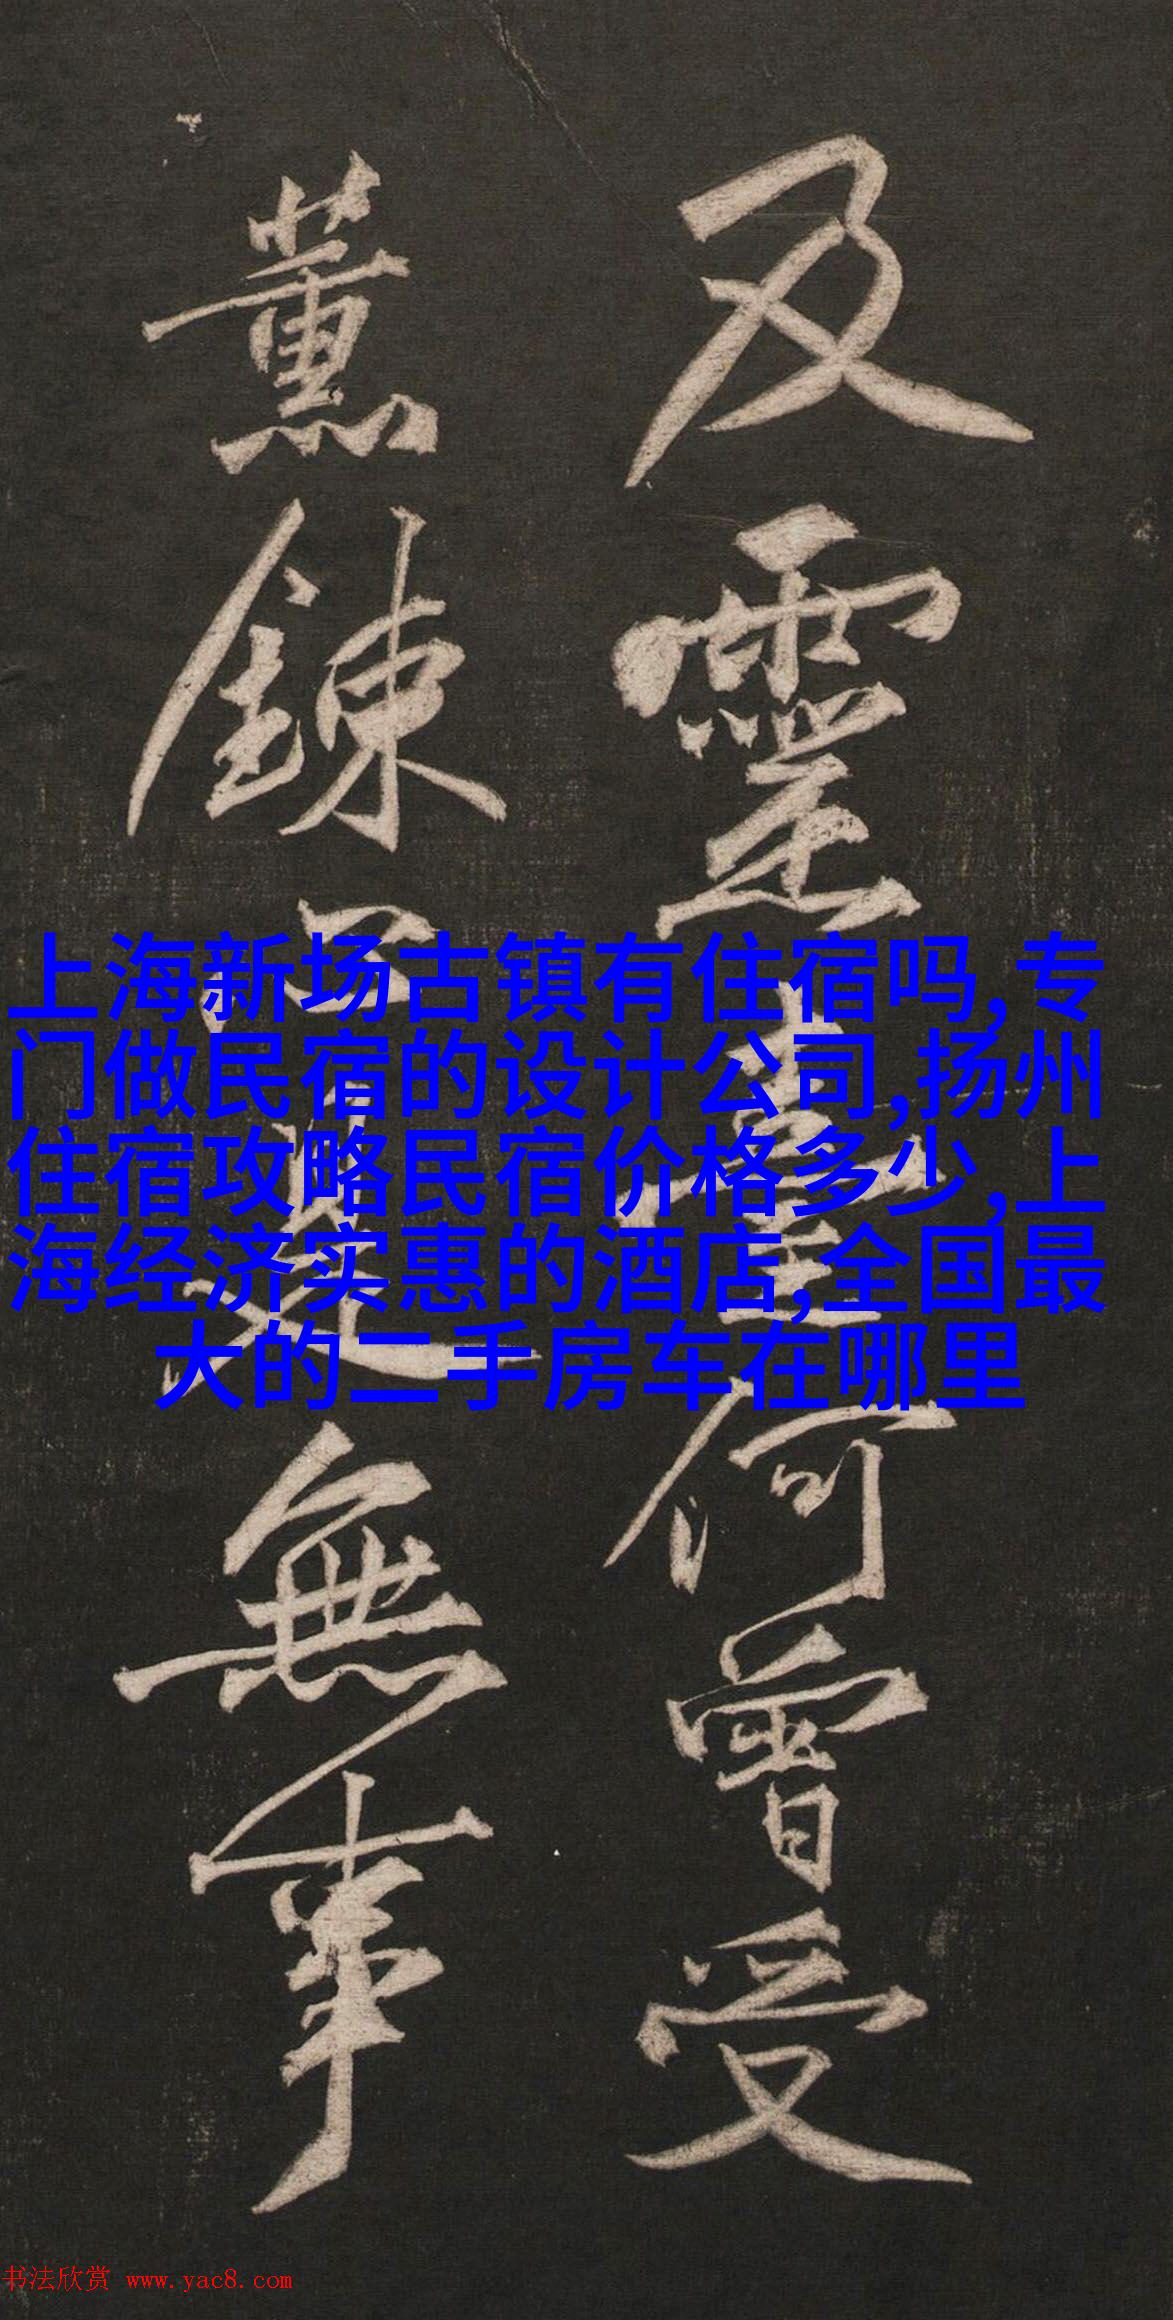 及靈臺何曾受
薰鍊只是無事
上海新场古镇有住宿吗,专
门做民宿的设计公司,扬州
住宿攻略民宿价格多少,上
海经济实惠的酒店,全国最
大的二手房车在哪里
书法欣赏 www.yac8.com